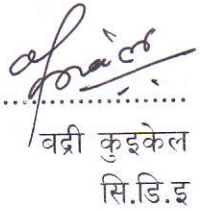 बद्री कुइकेल
सि.डि.इ